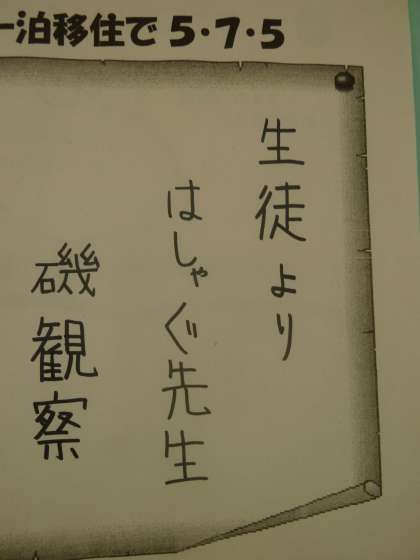 一泊移住で5・7・5
生徒より
はしゃぐ先生
磯観察